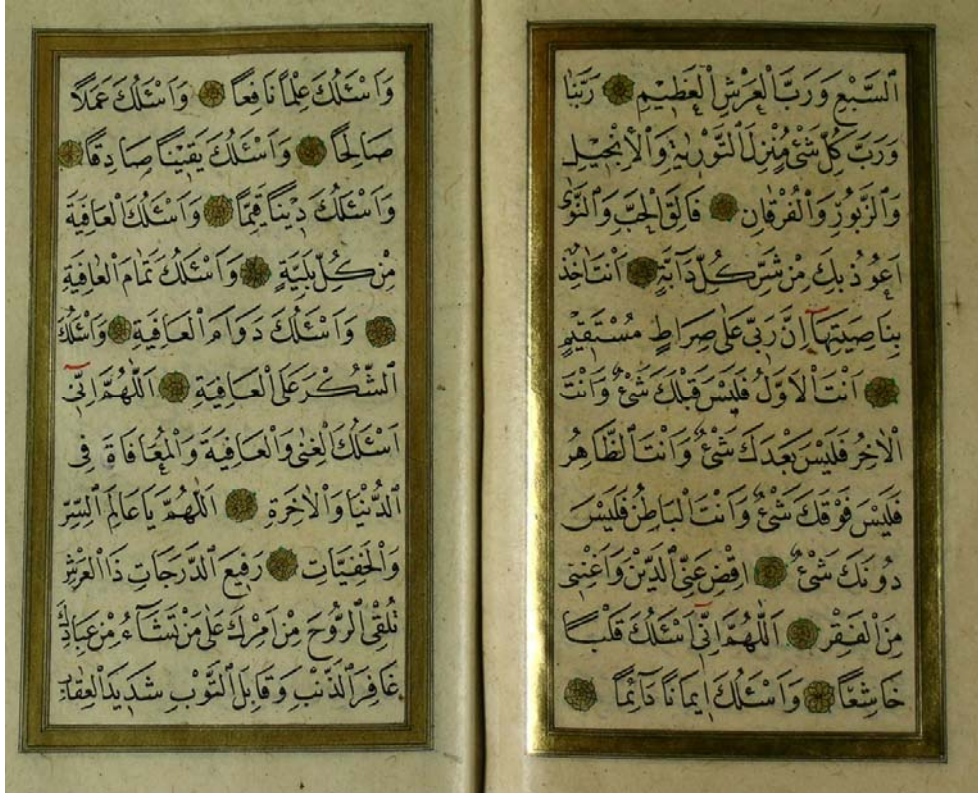 اَلسَّبْعِ وَرَبَّ الْعَرْشِ الْعَظِيْمِ ۞ رَبَّنَا
وَرَبَّ كُلِّ شَیْءٍ مُنْزِلَ التَّوْرٰيةِ وَالْاِنْجِيْلِ
وَالزَّبُوْرِ وَالْفُرْقَانِ ۞ فَالِقَ الْحَبِّ وَالنَّوٰى
اَعُوْذُ بِكَ مِنْ شَرِّ كُلِّ دَآبَّةٍ ۞ اَنْتَ اٰخِذٌ
بِنَاصِيَتِهَا اِنَّ رَبِّى عَلٰى صِرَاطٍ مُسْتَقِيْمٍ
۞ اَنْتَ الْاَوَّلُ فَلَيْسَ قَبْلَكَ شَىْءٌ وَاَنْتَ
الْاٰخِرُ فَلَيْسَ بَعْدَكَ شَىْءٌ وَاَنْتَ الظَّاهِرُ
فَلَيْسَ فَوْقَكَ شَىْءٌ وَاَنْتَ الْبَاطِنُ فَلَيْسَ
دُوْنَكَ شَىْءٌ ۞ اِقْضِ عَنِّى الدَّيْنَ وَاَغْنِنِى
مِنَ الْفَقْرِ ۞ اَللّٰهُمَّ اِنِّىٓ اَسْئَلُكَ قَلْبًا
خَاشِعًا ۞ وَاَسْئَلُكَ اِيْمَانًا دَآئِمًا ۞
وَاَسْئَلُكَ عِلْمًا نَافِعًا ۞ وَاَسْئَلُكَ عَمَلًا
صَالِحًا ۞ وَاَسْئَلُكَ يَقِيْنًا صَادِقًا ۞
وَاَسْئَلُكَ دِيْنًا قَيِّمًا ۞ وَاَسْئَلُكَ الْعَافِيَةَ
مِنْ كُلِّ بَلِيَّةٍ ۞ وَاَسْئَلُكَ تَمَامَ الْعَافِيَةِ
۞ وَاَسْئَلُكَ دَوَامَ الْعَافِيَةِ ۞ وَاَسْئَلُكَ
الشُّكْرَ عَلَى الْعَافِيَةِ ۞ اَللّٰهُمَّ اِنِّىٓ
اَسْئَلُكَ الْغِنٰى وَالْعَافِيَةَ وَالْمُعَافَاةَ فِى
الدُّنْيَا وَالْاٰخِرَةِ ۞ اَللّٰهُمَّ يَا عَالِمَ السِّرِّ
وَالْخَفِيَّاتِ ۞ رَفِيْعَ الدَّرَجَاتِ ذَا الْعَرْشِ
تُلْقِى الرُّوْحَ مِنْ اَمْرِكَ عَلٰى مَنْ تَشَآءُ مِنْ عِبَادِكَ
غَافِرَ الذَّنْبِ وَقَابِلَ التَّوْبِ شَدِيْدَ الْعِقَابِ